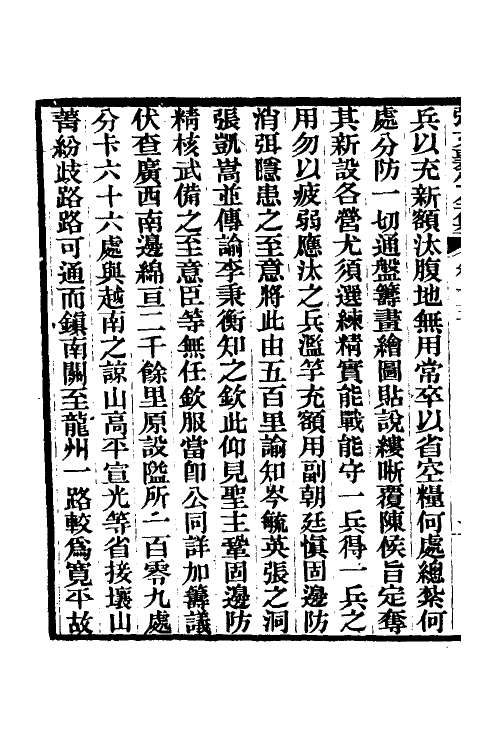 兵以充新額汰腹地無用常卒以省空糧何處總紮何
處分防一切通盤籌畫繪圖貼說縷晰覆陳候旨定奪
其新設各營尤須選練精實能戰能守一兵得一兵之
用勿以疲弱應汰之兵濫竽充額用副朝廷愼固邊防
消弭隱患之至意將此由五百里諭知岑毓英張之洞
張凱嵩並傳諭李秉衡知之欽此仰見聖主鞏固邊防
精核武備之至意臣等無任欽服當卽公同詳加籌議
伏查廣西南邊綿亘二千餘里原設隘所一百零九處
分卡六十六處與越南之諒山高平宣光等省接壤山
菁紛歧路路可通而鎮南關至龍州一路較爲寬平故